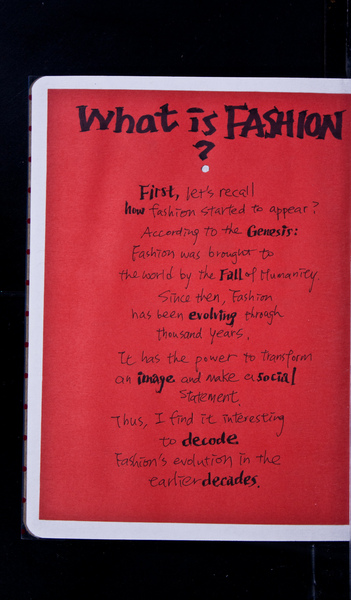 What is FASHION
?
First, let's recall
how fashion started to appear?
According to the Genesis:
Fashion was brought to
the world by the Fall of Humanity.
Since then, Fashion
has been evolving through
thousand years.
It has the power to transform
an image and make a social
statement.
Thus, I find it interesting
to decode
Fashion's evolution in the
earlier decades.